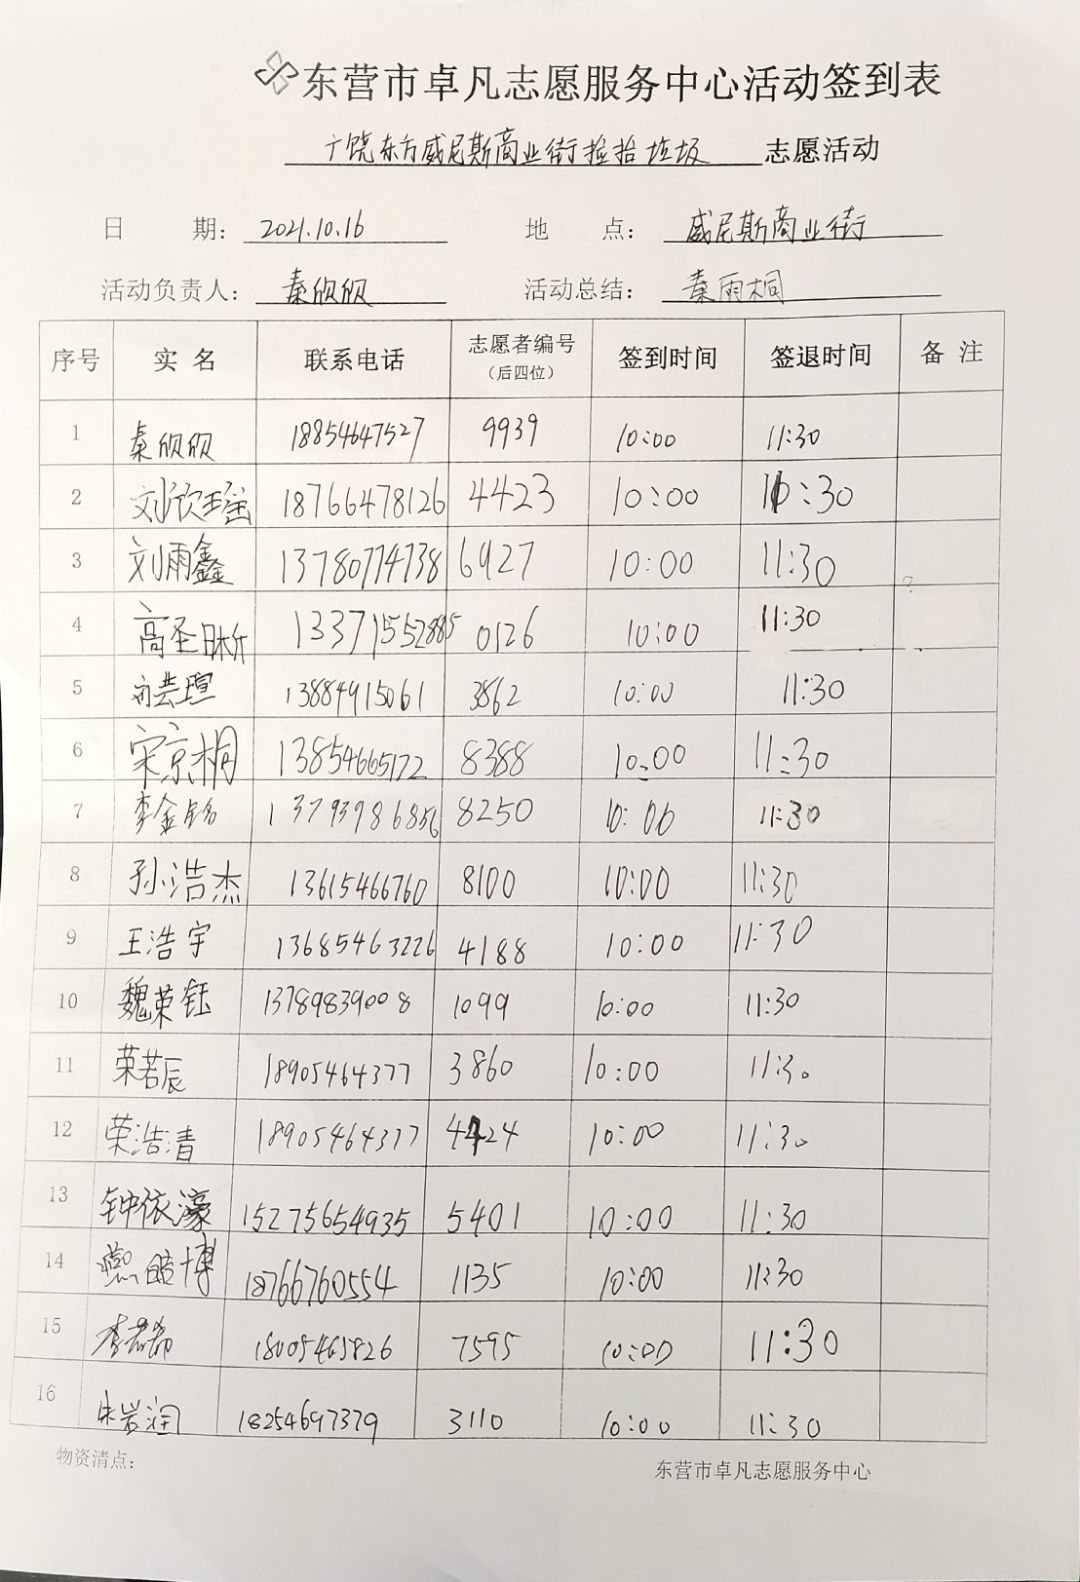 东营市卓凡志愿服务中心活动签到表
广饶东方威尼斯商业街捡拾垃圾 志愿活动
日 期: 2021.10.16 地 点: 威尼斯商业街
活动负责人: 秦欣欣 活动总结: 秦雨桐
序号 实 名 联系电话 志愿者编号 (后四位) 签到时间 签退时间 备 注
1 秦欣欣 18854647527 9939 10:00 11:30
2 刘欣瑶 18766478126 4423 10:00 11:30
3 刘雨鑫 13780774738 6927 10:00 11:30
4 高圣昕 0126 10:00 11:30
5 13884915061 3862 10:00 11:30
6 宋京桐 13854665172 8388 10:00 11:30
7 李金铭 13793986856 8250 10:00 11:30
8 孙浩杰 13615466760 8100 10:00 11:30
9 王浩宇 13685463226 4188 10:00 11:30
10 魏荣钰 13789839008 1099 10:00 11:30
11 荣若辰 18905464377 3860 10:00 11:30
12 荣浩清 18905464377 4424 10:00 11:30
13 钟依濠 15275654935 5401 10:00 11:30
14 18766760554 1135 10:00 11:30
15 18005465826 7595 10:00 11:30
16 朱岩润 18254697379 3110 10:00 11:30
物资清点: 东营市卓凡志愿服务中心